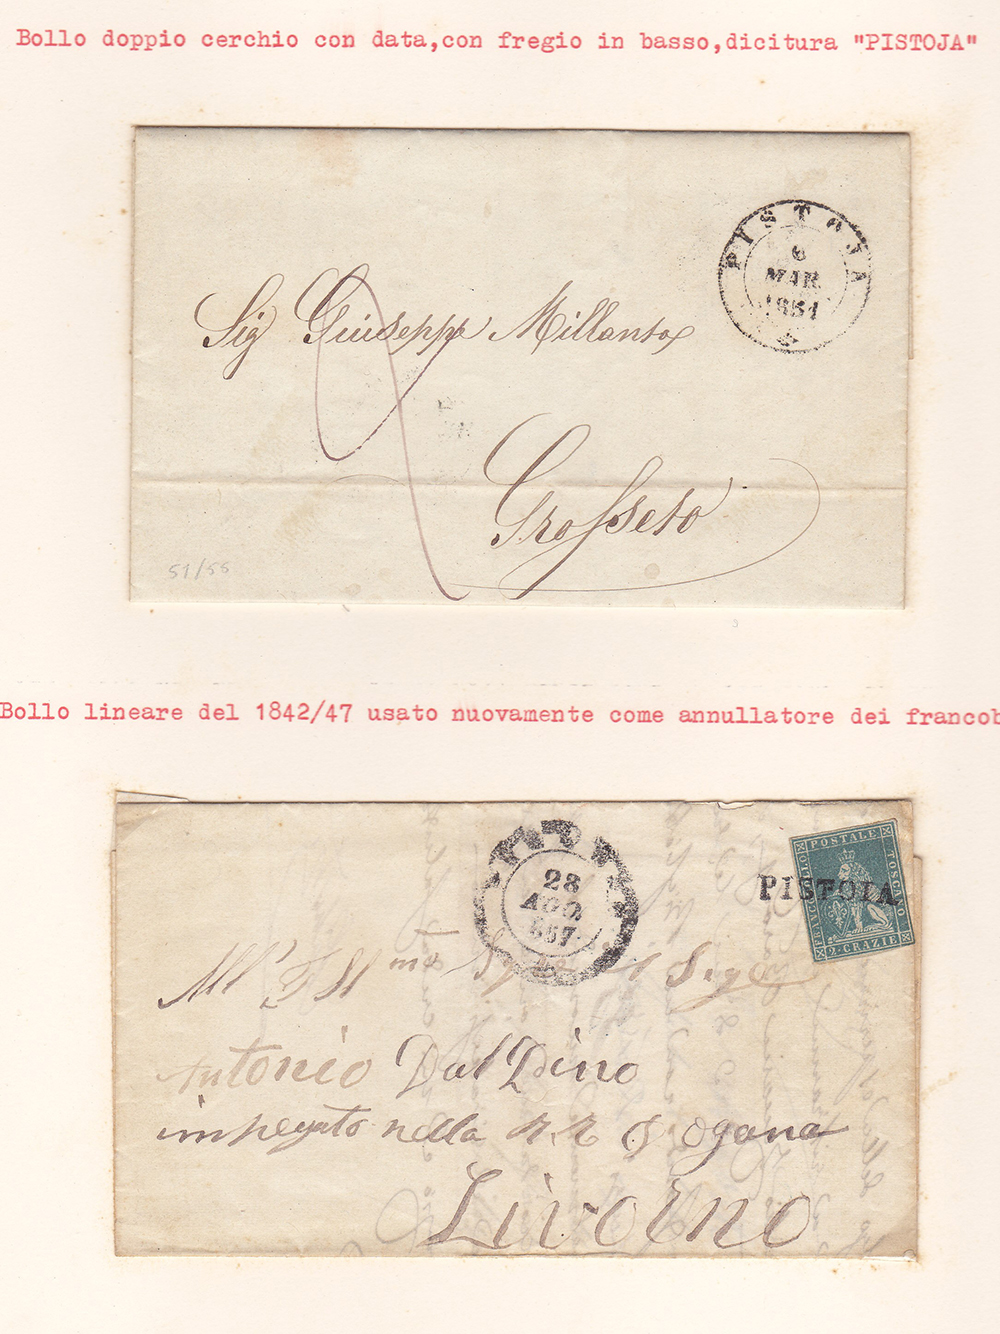 Bollo doppio cerchio con data,con fregio in basso,dicitura "PISTOJA"
PISToJA
6
MAR.
1851
Sig Giuseppe Millanta
Grosseto
51/55
Bollo lineare del 1842/47 usato nuovamente come annullatore dei francob
28
AGO
1857
FRANCOBOLLO POSTALE TOSCANO
2·CRAZIE
PISTOIA
All' Ill mo
Sige
Antonio Dal Dino
impegato nella R. R Dogana
Livorno